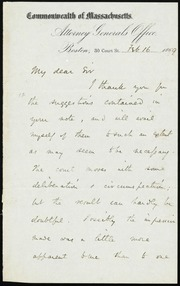 Commonwealth of Massachusetts.
Attorney General's Office,
Boston, 30 Court St. Feb 16 1869
My dear Sir
I thank you for
the suggestions contained in
your note, and will avail
myself of them to such an extent
as may seem to be necessary.
The court moves with some
deliberation & circumspection,
but the result can hardly be
doubtful. Possibly the impression
made was a little more
apparent to me than to one